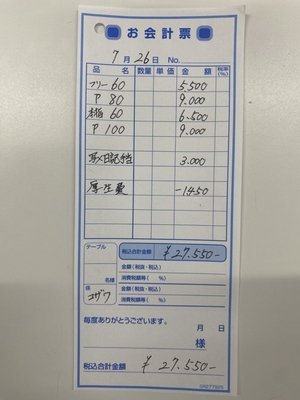 お会計票
7月26日 No.
品名 数量 単価 金額 税率(%)
フリー60 5.500
P 80 9.000
本指 60 6.500
P 100 9.000
写メ日記手当 3.000
厚生費 -1450
テーブル 税込合計金額 ¥27.550-
名様 金額(税抜・税込)
消費税額等( %)
係 金額(税抜・税込)
コザワ 消費税額等( %)
毎度ありがとうございます。
月 日
様
税込合計金額 ¥27.550-